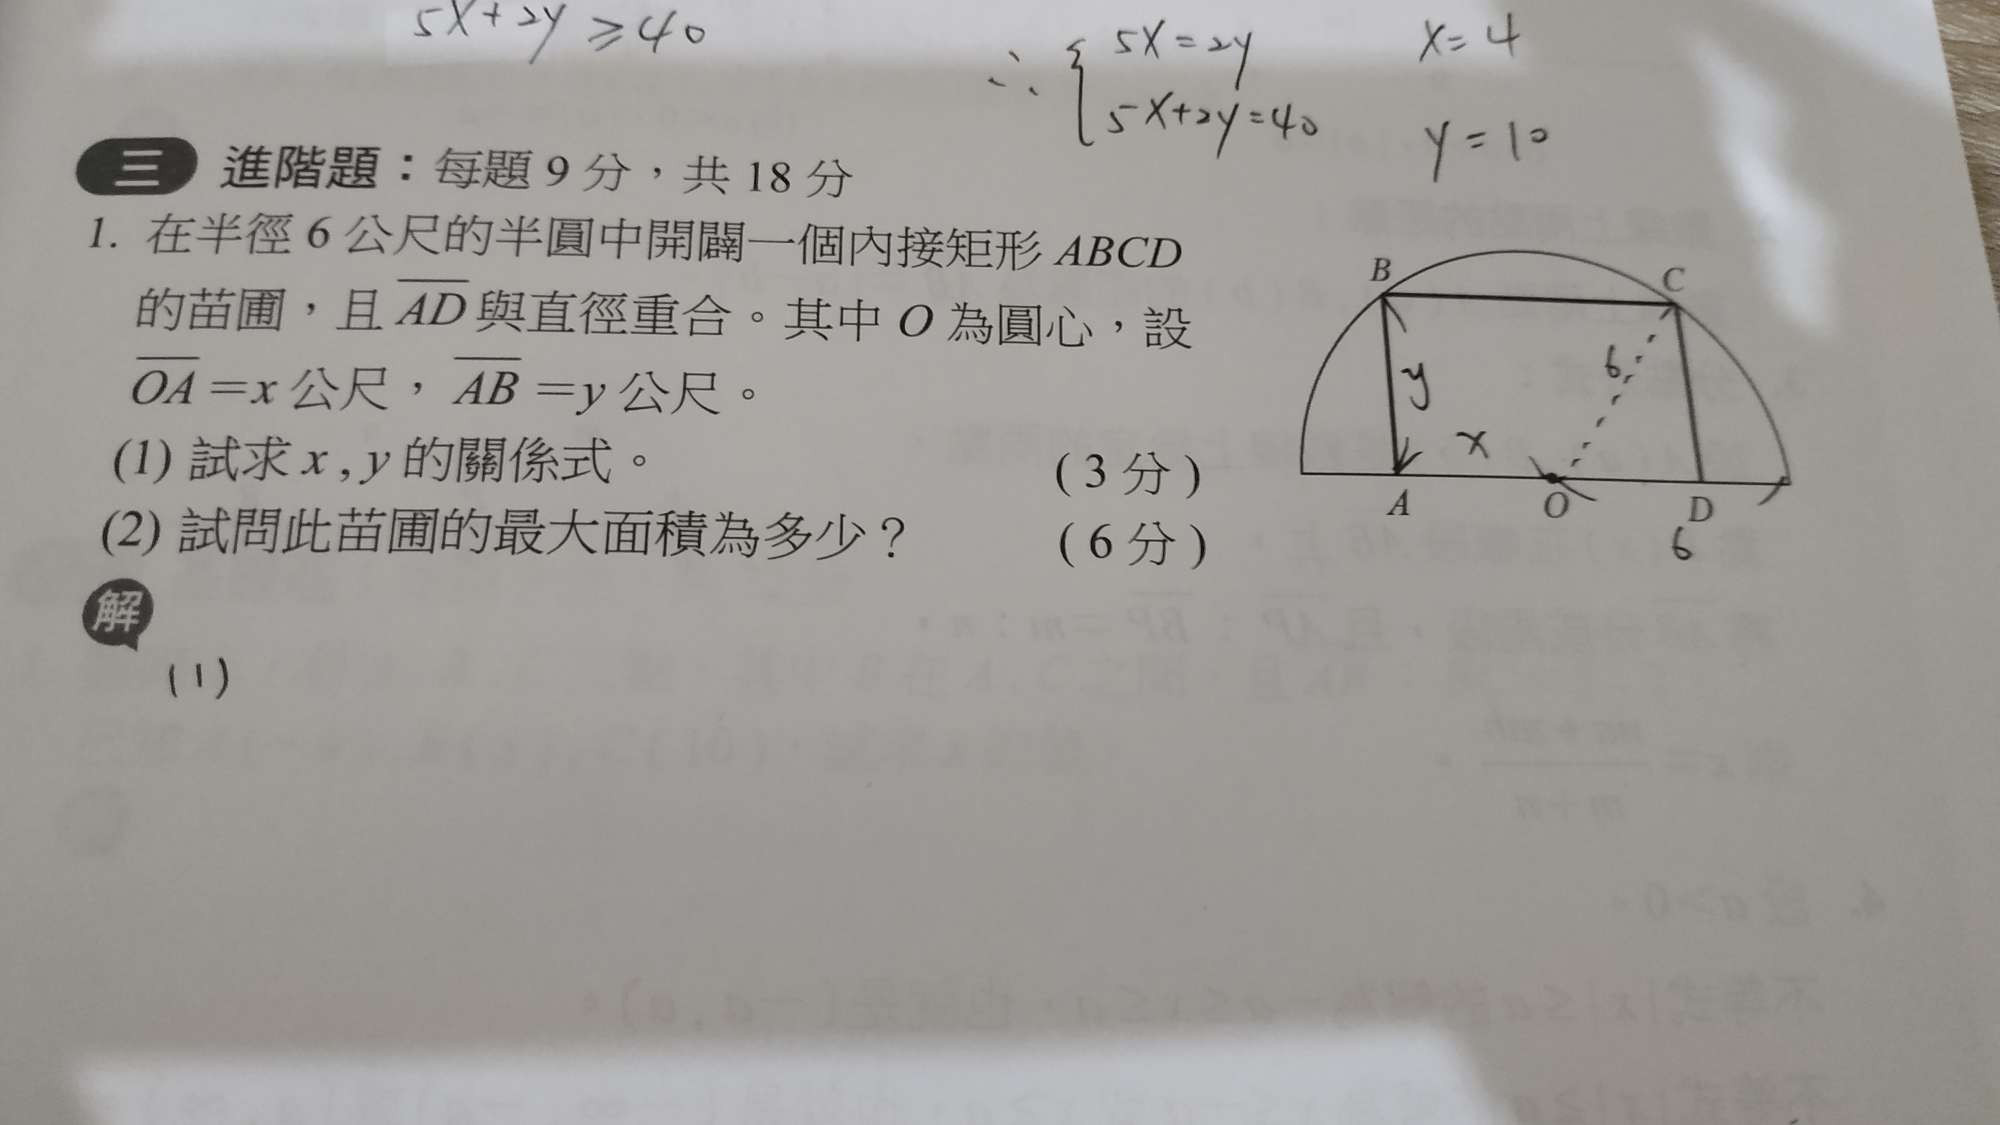 5x+2y≥40
∴ { 5x=2y
5x+2y=40
x=4
y=10
三 進階題：每題 9 分，共 18 分
1. 在半徑 6 公尺的半圓中開闢一個內接矩形 ABCD
的苗圃，且 AD 與直徑重合。其中 O 為圓心，設
OA=x 公尺，AB=y 公尺。
(1) 試求 x , y 的關係式。 （3 分）
(2) 試問此苗圃的最大面積為多少？ （6 分）
B C
6
y
x
A O D
6
解
(1)